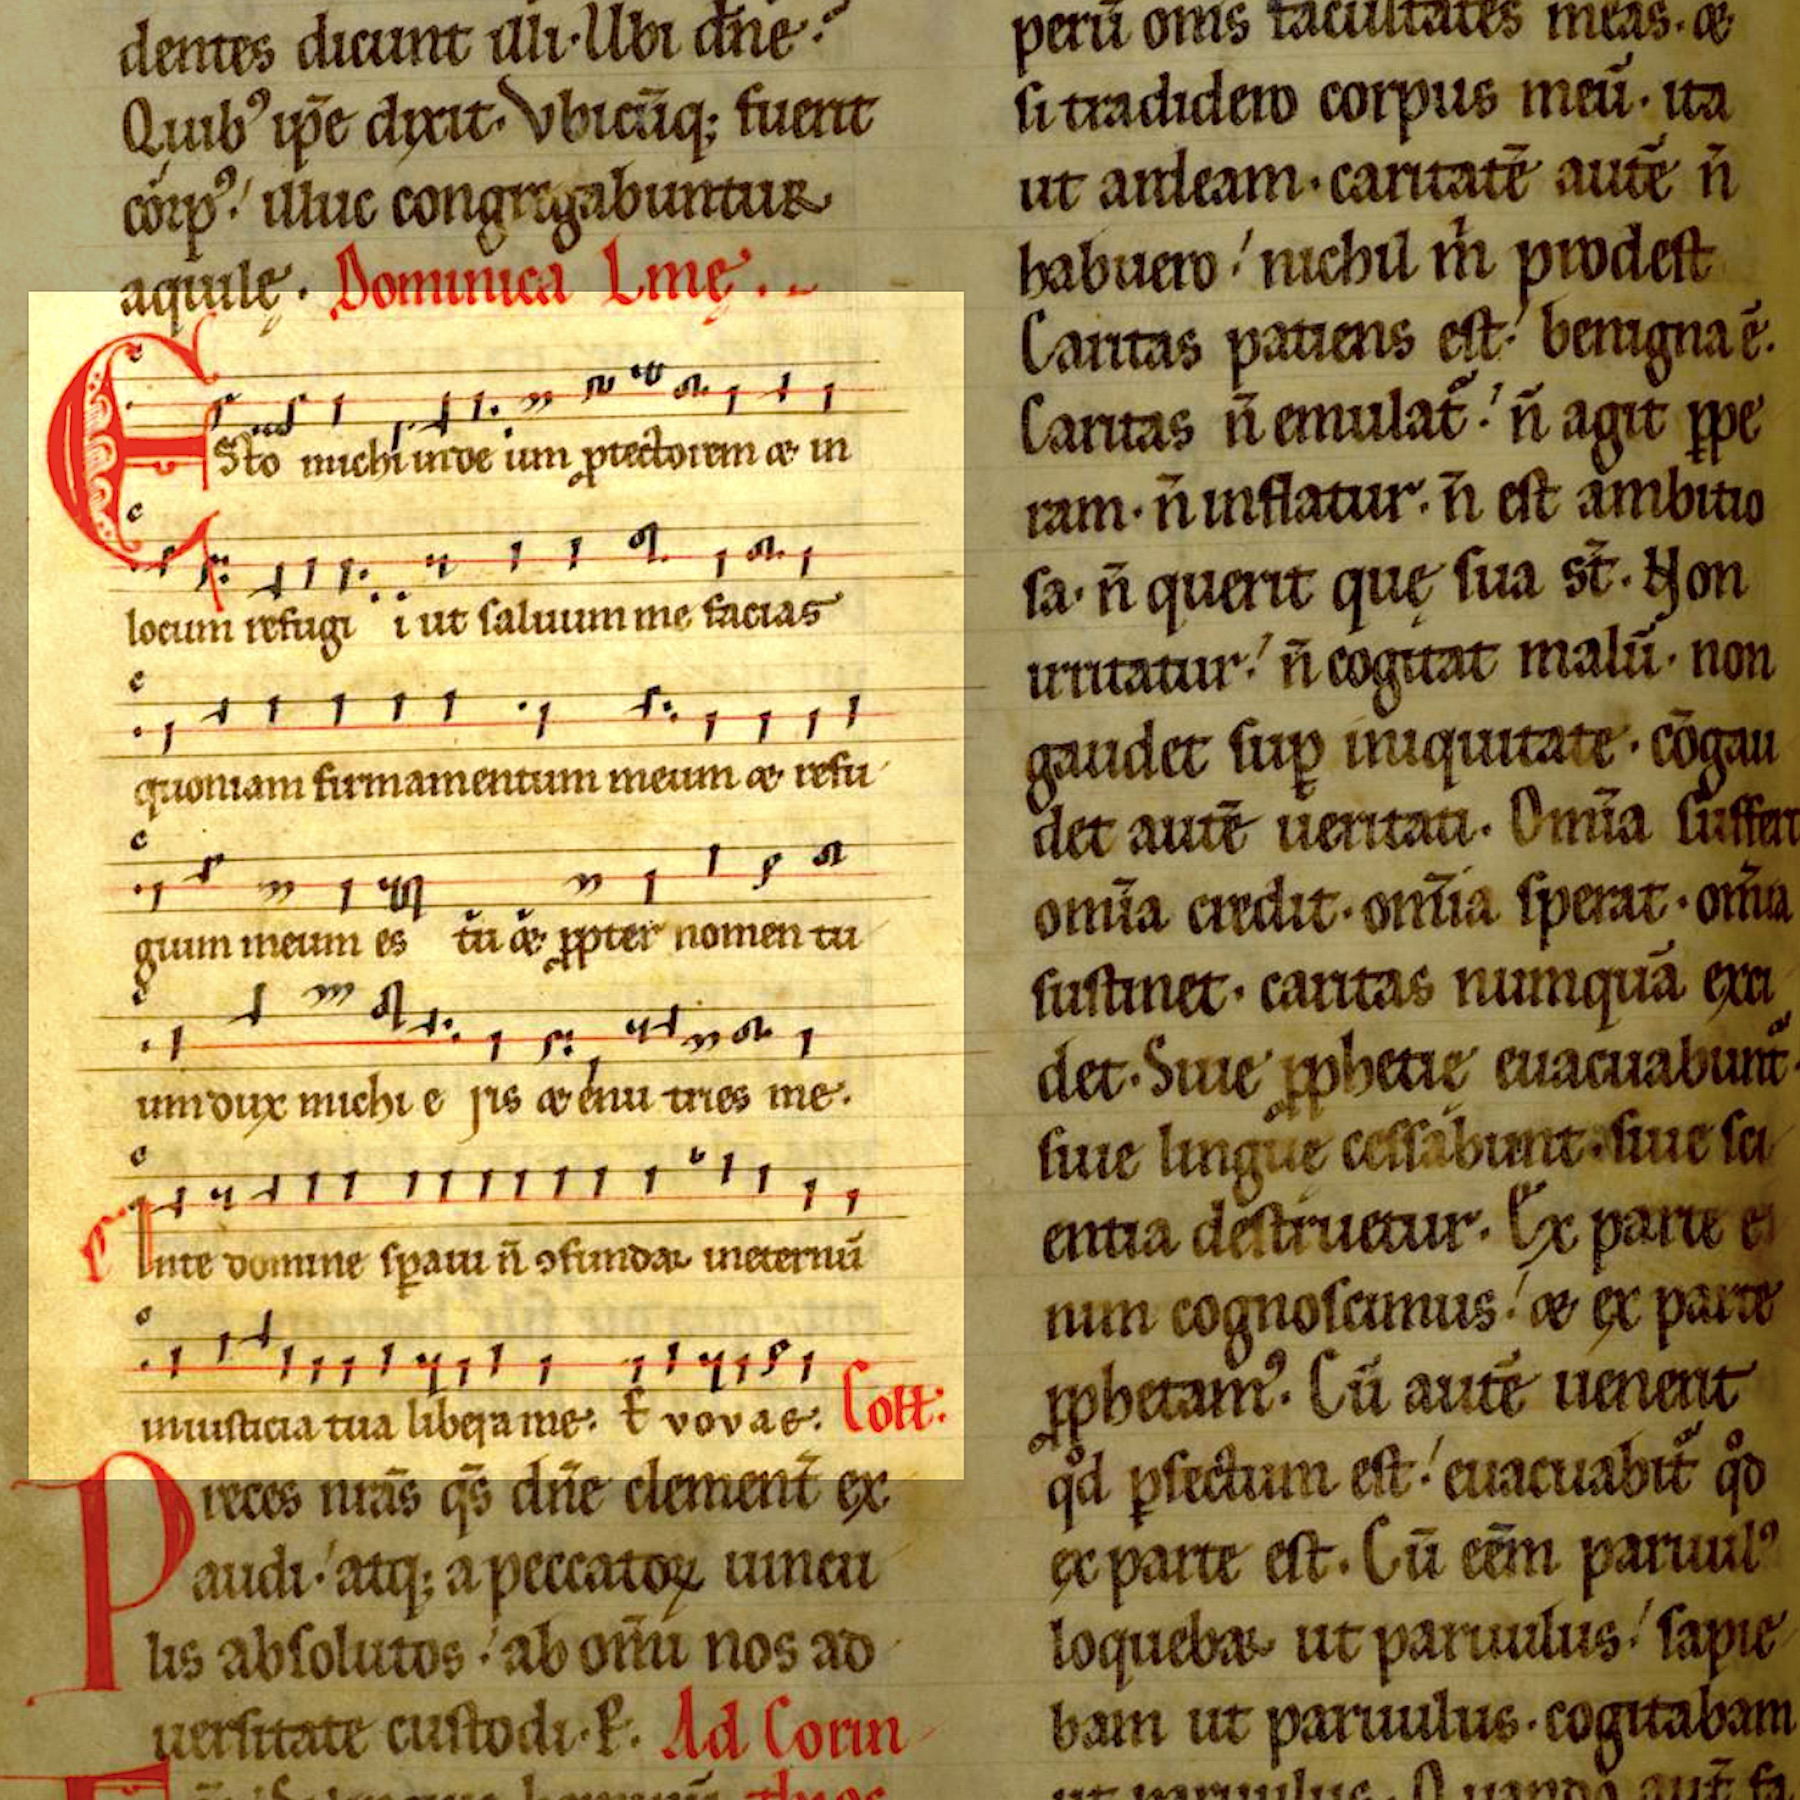 dentes dicunt illi. Ubi dn̄e.
Quib᾽ ip̄e dixit. Vbicūq; fuerit
corp᾽ illuc congregabuntur
aquilę. Dominica Lmę.
Esto michi in deum ꝓtectorem & in
locum refugi i ut saluum me facias
quoniam firmamentum meum & refu
gium meum es tu & ꝓpter nomen tu
um dux michi e ris & enu tries me.
In te domine sꝑaui n̄ ꝯfundar in eternū
in iusticia tua libera me. E v o v a e. Coll̄.
Preces nr̄as q̄s dn̄e clement̄ ex
audi atq; a peccatoꝝ uincu
lis absolutos ab om̄i nos ad
uersitate custodi. P. Ad Corin
perū om̄s facultates meas. &
si tradidero corpus meū. ita
ut ardeam. caritatē autē n̄
habuero nichil m̄ prodest
Caritas patiens est benigna ē.
Caritas n̄ emulat̄ n̄ agit ꝑpe
ram. n̄ inflatur. n̄ est ambitio
sa. n̄ querit quę sua st̄. Non
irritatur n̄ cogitat malū. non
gaudet suꝑ iniquitate. cōgau
det autē ueritati. Om̄ia suffert
omīa credit. omīa sperat. omīa
sustinet. caritas numquā exci
det. Siue ꝓphetie euacuabunt̄
siue lingue cessabunt. siue sci
entia destruetur. Ex parte e
nim cognoscimus & ex parte
ꝓphetam᾽. Cū autē uenerit
qd̊ ꝑfectum est euacuabit̄ qd̊
ex parte est. Cū eēm paruul᾽
loquebar ut paruulus sapie
bam ut paruulus. cogitabam